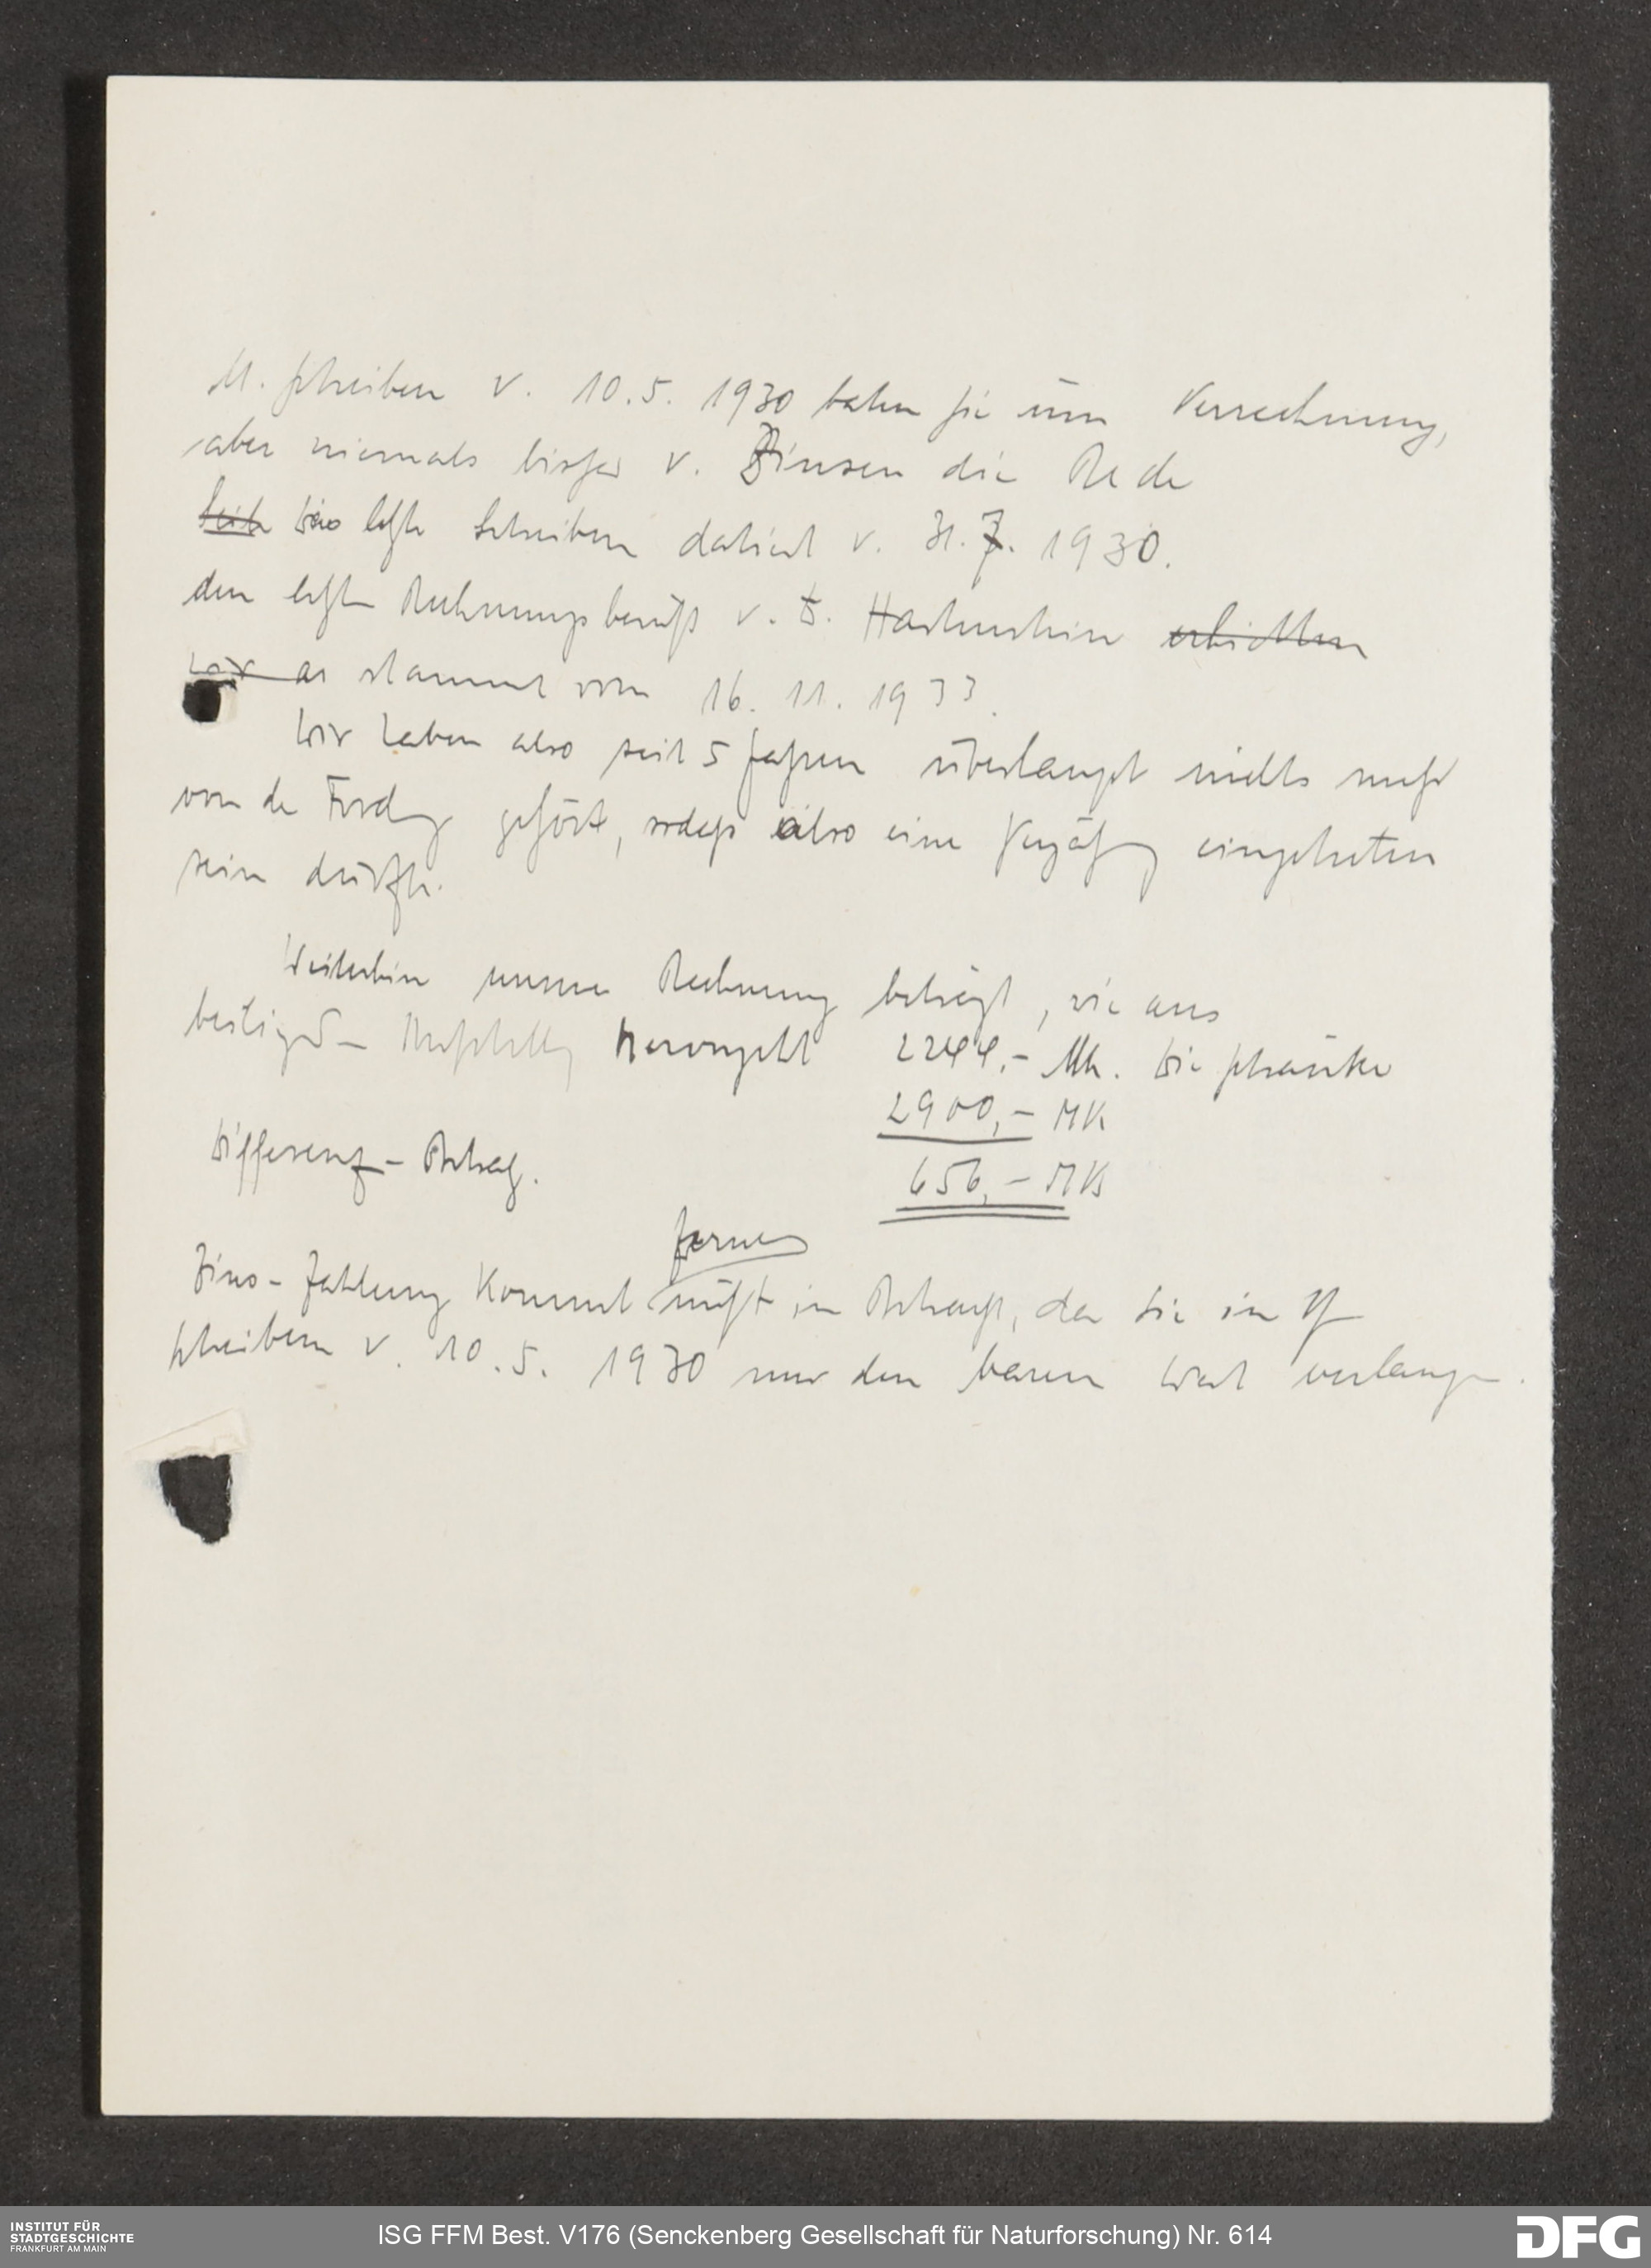 M. Schreiben v. 10.5. 1930 baten Sie um Verrechnung,
aber niemals bisher v. Zinsen die Rede
Das letzte Schreiben datiert v. 31.7. 1930.
den letzten Rechnungs v. D.
er stammt vom 16. 11. 1933.
Wir haben also seit 5 Jahren überhaupt nichts mehr
von der Fordg gehört, sodass also eine Verjährg eingetreten
sein dürfte.
Weiterhin unsere Rechnung beträgt, wie aus
beiligend hervorgeht 2244,- Mk. Die Schränke
2900,- MK
Differenz-Betrag.
656,- MK
ferner
Zins-Zahlung kommt nicht in Betracht, da Sie in
Schreiben v. 10.5. 1930 nur den baren Wert verlangen.
INSTITUT FÜR
STADTGESCHICHTE
FRANKFURT AM MAIN
ISG FFM Best. V176 (Senckenberg Gesellschaft für Naturforschung) Nr. 614
DFG